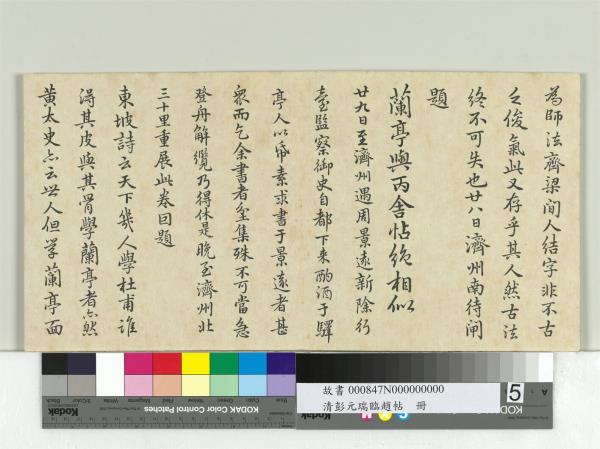 為師法齊梁間人結字非不古
之俊氣此又存乎其人然古法
終不可失也廿八日濟州南待閘
題
蘭亭與丙舍帖絶相似
廿九日至濟州遇周景遠新除行
臺監察御史自都下來酌酒于驛
亭人以帋素求書于景遠者甚
衆而乞余書者坌集殊不可當急
登舟解纜乃得休是晚至濟州北
三十里重展此卷回題
東坡詩云天下幾人學杜甫誰
得其皮與其骨學蘭亭者亦然
黃太史亦云世人但學蘭亭面
故書 000847N000000000
清彭元瑞臨趙帖 冊
Kodak Color Control Patches
Kodak
KODAK
Blue
Cyan
Green
Yellow
Red
Magenta
White
3/Color
Black
5
A